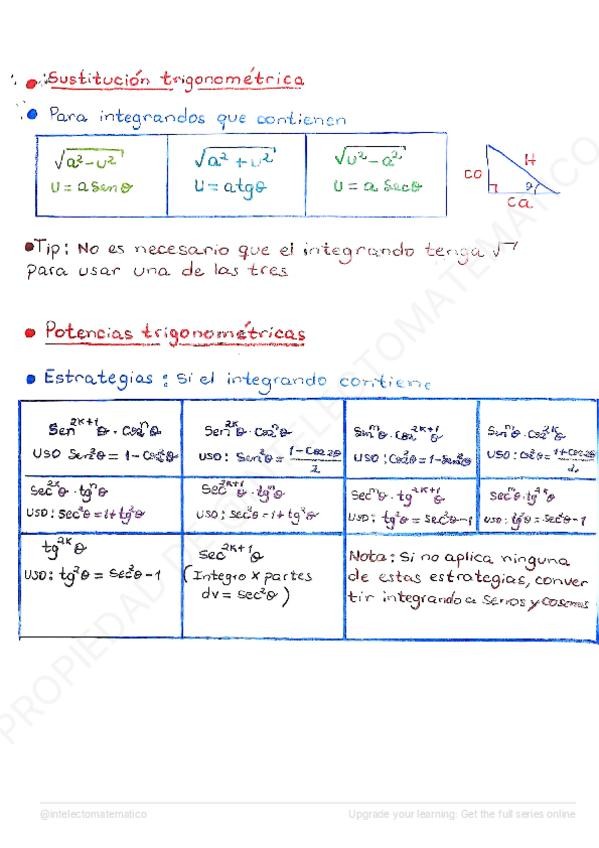 Sustitución trigonométrica
Para integrandos que contienen
√a²-u²
u = a Senθ
√a² + u²
u = a tgθ
√u² - a²
u = a Secθ
CO
H
θ
ca
Tip: No es necesario que el integrando tenga √
para usar una de las tres
Potencias trigonométricas
Estrategias: Si el integrando contiene
Sen²ᴷ⁺¹θ · Cosⁿθ
USO Sen²θ = 1 - Cos²θ
Sen²ᴷθ · Cosⁿθ
USO: Sen²θ = 1-Cos2θ/2
Sinᵐθ · Cos²ᴷ⁺¹θ
USO: Cos²θ = 1-Sen²θ
Senᵐθ · Cos²ᴷθ
USO: Cos²θ = 1+Cos2θ/2
Sec²ᴷθ · tgⁿθ
USO: Sec²θ = 1+tg²θ
Sec²ᴷ⁺¹θ · tgⁿθ
USO: Sec²θ = 1+tg²θ
Secᵐθ · tg²ᴷ⁺¹θ
USO: tg²θ = Sec²θ-1
Secᵐθ tg²ᴷθ
USO: tg²θ = Sec²θ-1
tg²ᴷθ
USO: tg²θ = Sec²θ - 1
Sec²ᴷ⁺¹θ
(Integro x partes
dv = Sec²θ)
Nota: Si no aplica ninguna
de estas estrategias, conver
tir integrando a Senos y Cosenos
PROPIEDAD DE @INTELECTOMATEMATICO
@intelectomatematico
Upgrade your learning: Get the full series online